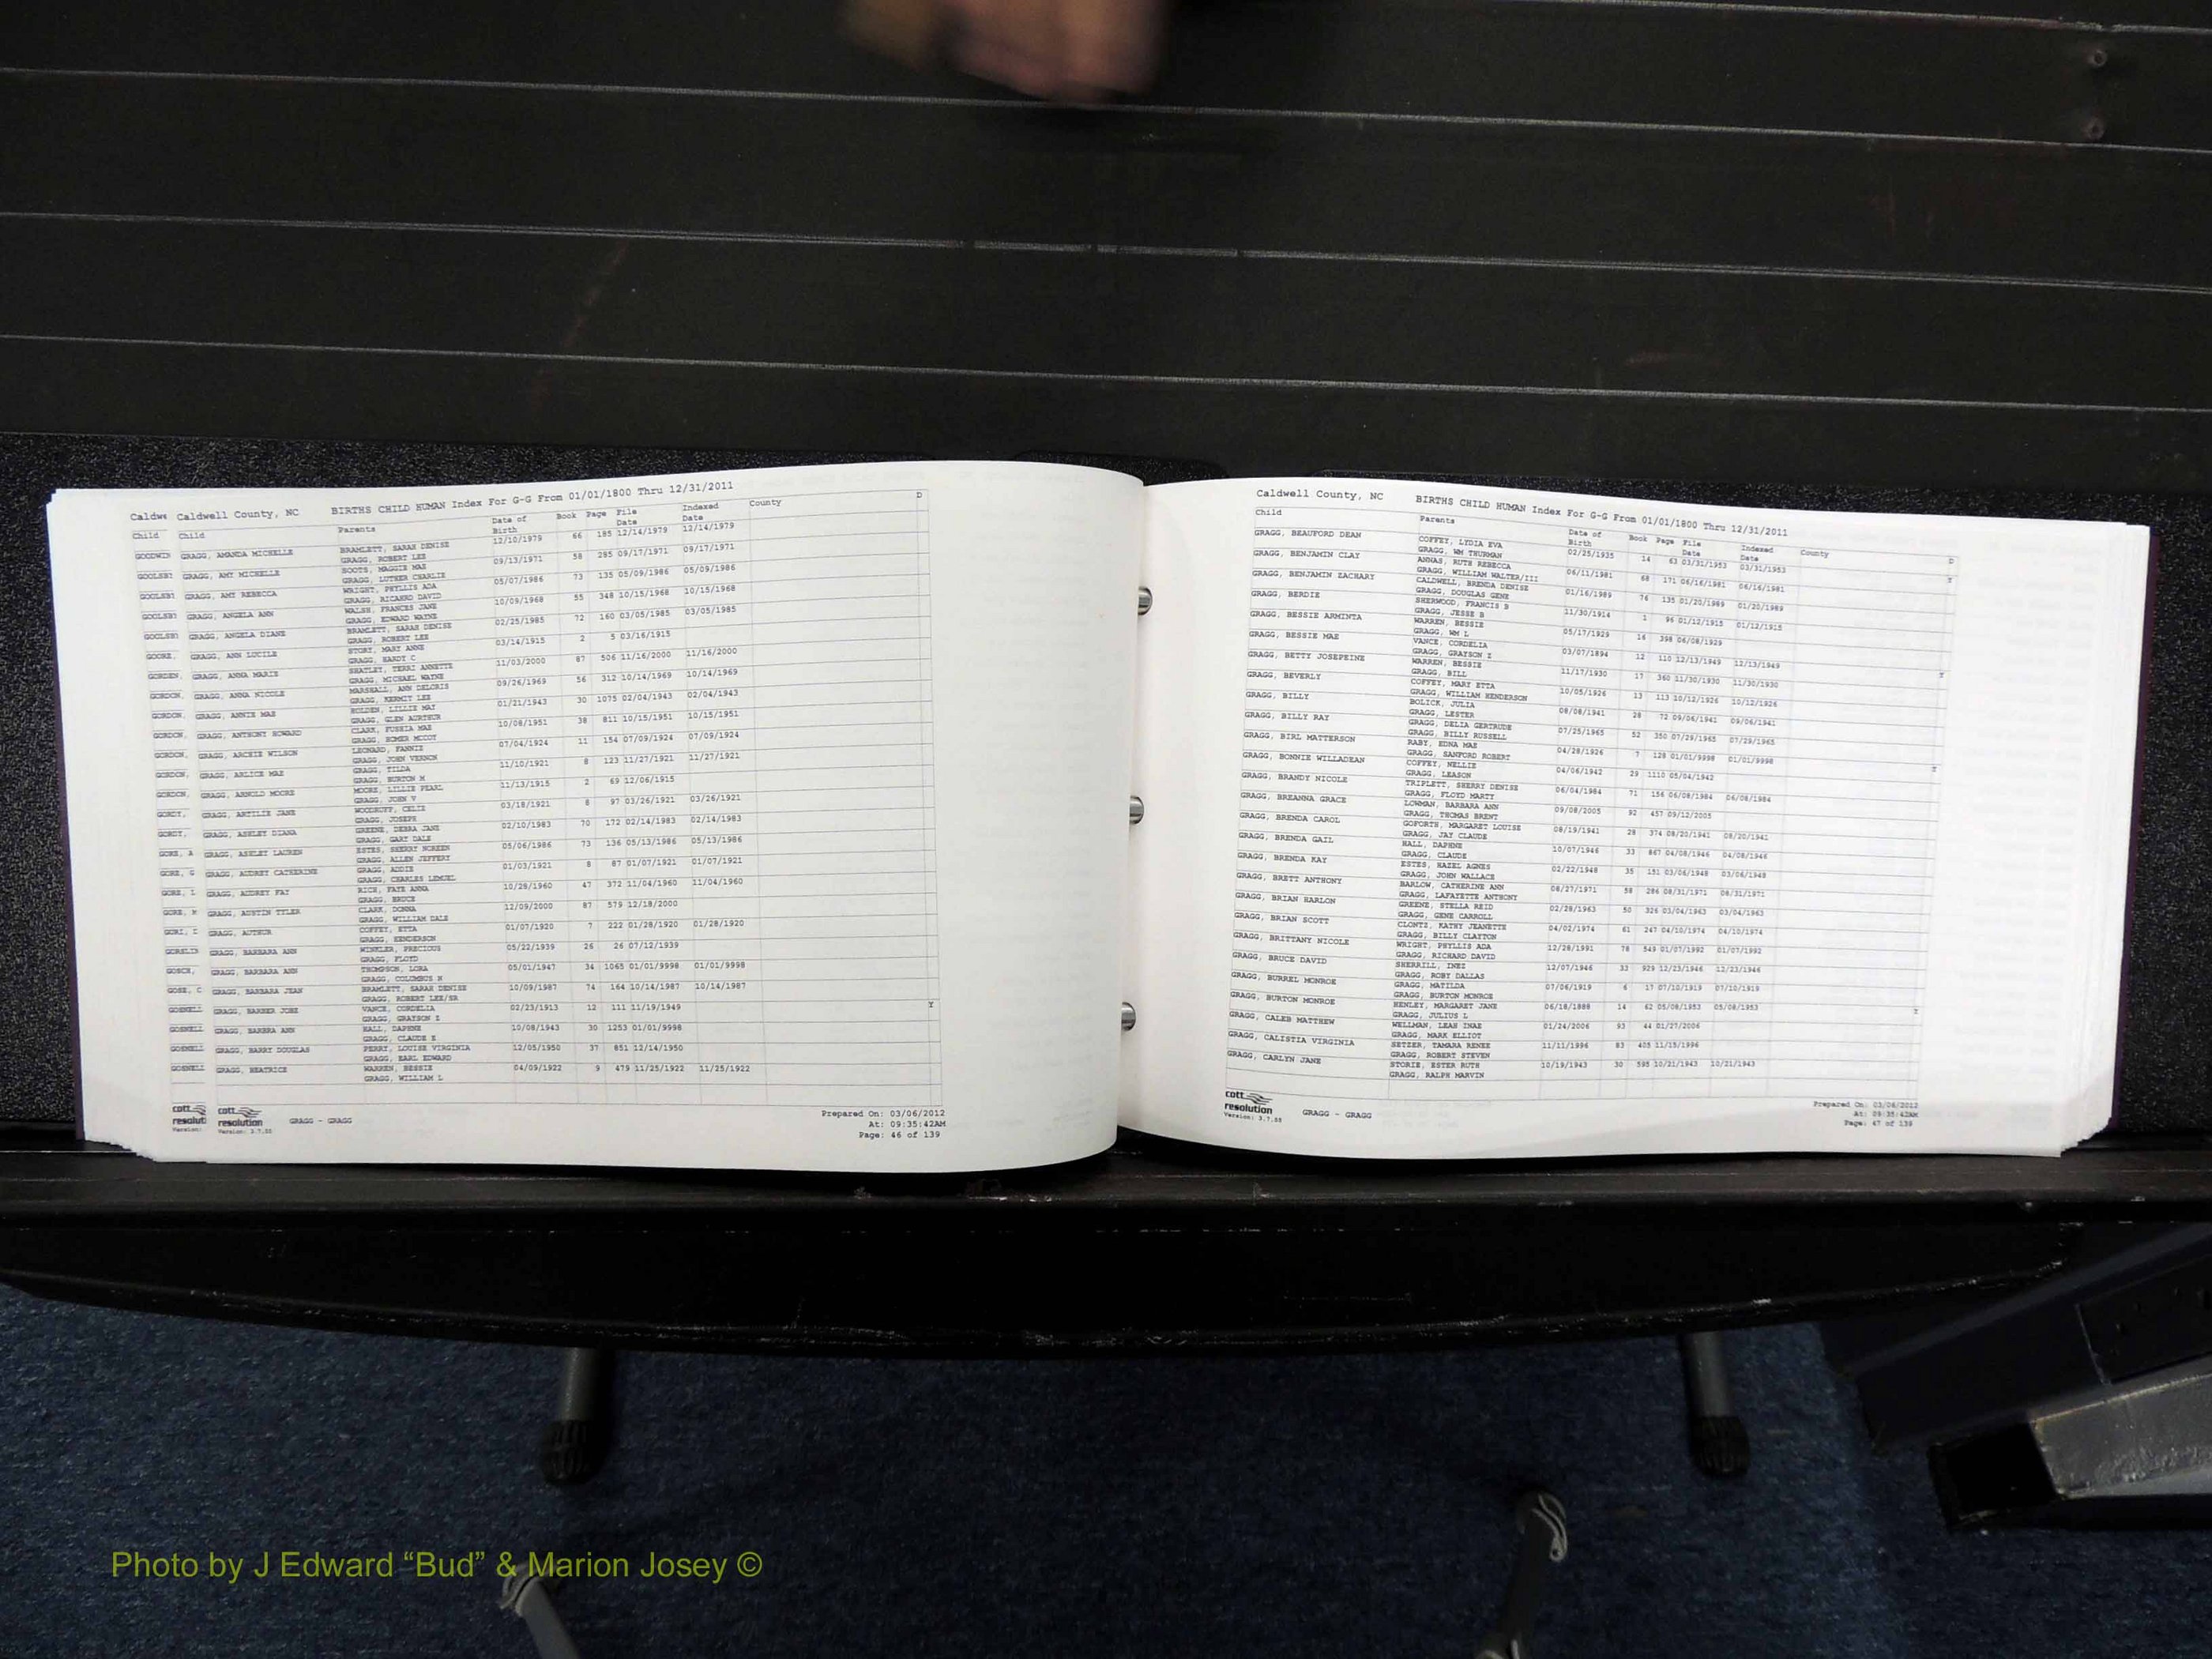 Caldwe Caldwell County, NC BIRTHS CHILD HUMAN Index For G-G From 01/01/1800 Thru 12/31/2011
Child Child Parents Date of Birth Book Page File Date Indexed Date County D
GOODWIN GRAGG, AMANDA MICHELLE BRAMLETT, SARAH DENISE 12/10/1979 66 185 12/14/1979 12/14/1979
GRAGG, ROBERT LEE
GRAGG, AMY MICHELLE BOOTS, MAGGIE MAE 09/13/1971 58 285 09/17/1971 09/17/1971
GRAGG, LUTHER CHARLIE
GRAGG, AMY REBECCA WRIGHT, PHYLLIS ADA 05/07/1986 73 135 05/09/1986 05/09/1986
GRAGG, RICHARD DAVID
GRAGG, ANGELA ANN WALSH, FRANCES JANE 10/09/1968 55 348 10/15/1968 10/15/1968
GRAGG, EDWARD WAYNE
GRAGG, ANGELA DIANE BRAMLETT, SARAH DENISE 02/25/1985 72 160 03/05/1985 03/05/1985
GRAGG, ROBERT LEE
GOORE, GRAGG, ANN LUCILE STORY, MARY ANNE 03/14/1915 2 5 03/16/1915
GRAGG, HARDY C
GORDEN, GRAGG, ANNA MARIE SHATLEY, TERRI ANNETTE 11/03/2000 87 506 11/16/2000 11/16/2000
GRAGG, MICHAEL WAYNE
GORDON, GRAGG, ANNA NICOLE MARSHALL, ANN DELORIS 09/26/1969 56 312 10/14/1969 10/14/1969
GRAGG, KERMIT LEE
GORDON, GRAGG, ANNIE MAE HOLDEN, LILLIE MAY 01/21/1943 30 1075 02/04/1943 02/04/1943
GRAGG, GLEN AURTHUR
GORDON, GRAGG, ANTHONY HOWARD CLARK, FUSHIA MAE 10/08/1951 38 811 10/15/1951 10/15/1951
GRAGG, HOMER MCCOY
GORDON, GRAGG, ARCHIE WILSON LEONARD, FANNIE 07/04/1924 11 154 07/09/1924 07/09/1924
GRAGG, JOHN VERNON
GORDON, GRAGG, ARLICE MAE GRAGG, TILDA 11/10/1921 8 123 11/27/1921 11/27/1921
GRAGG, BURTON M
GORDON, GRAGG, ARNOLD MOORE MOORE, LILLIE PEARL 11/13/1915 2 69 12/06/1915
GRAGG, JOHN V
GORDY, GRAGG, ARTILIE JANE WOODRUFF, CELIE 03/18/1921 8 97 03/26/1921 03/26/1921
GRAGG, JOSEPH
GORDY, GRAGG, ASHLEY DIANA GREENE, DEBRA JANE 02/10/1983 70 172 02/14/1983 02/14/1983
GRAGG, GARY DALE
GORE, A GRAGG, ASHLEY LAUREN ESTES, SHERRY NOREEN 05/06/1986 73 136 05/13/1986 05/13/1986
GRAGG, ALLEN JEFFERY
GORE, G GRAGG, AUDREY CATHERINE GRAGG, ADDIE 01/03/1921 8 87 01/07/1921 01/07/1921
GRAGG, CHARLES LEMUEL
GORE, L GRAGG, AUDREY FAY RICH, FAYE ANNA 10/28/1960 47 372 11/04/1960 11/04/1960
GRAGG, BRUCE
GORE, M GRAGG, AUSTIN TYLER CLARK, DONNA 12/09/2000 87 579 12/18/2000
GRAGG, WILLIAM DALE
GRAGG, AUTHUR COFFEY, ETTA 01/07/1920 7 222 01/28/1920 01/28/1920
GRAGG, HENDERSON
GRAGG, BARBARA ANN WINKLER, PRECIOUS 05/22/1939 26 26 07/12/1939
GRAGG, FLOYD
GRAGG, BARBARA ANN THOMPSON, LORA 05/01/1947 34 1065 01/01/9998 01/01/9998
GRAGG, COLUMBUS H
GOSE, C GRAGG, BARBARA JEAN BRAMLETT, SARAH DENISE 10/09/1987 74 164 10/14/1987 10/14/1987
GRAGG, ROBERT LEE/SR
GOSNELL GRAGG, BARBER JOHE VANCE, CORDELIA 02/23/1913 12 111 11/19/1949 Y
GRAGG, GRAYSON Z
GOSNELL GRAGG, BARBRA ANN HALL, DAPHNE 10/08/1943 30 1253 01/01/9998
GRAGG, CLAUDE E
GOSNELL GRAGG, BARRY DOUGLAS PERRY, LOUISE VIRGINIA 12/05/1950 37 851 12/14/1950
GRAGG, EARL EDWARD
GOSNELL GRAGG, BEATRICE WARREN, BESSIE 04/09/1922 9 479 11/25/1922 11/25/1922
GRAGG, WILLIAM L
cott cott
resoluti resolution GRAGG - GRAGG
Version: Version: 3.7.55
Prepared On: 03/06/2012
At: 09:35:42AM
Page: 46 of 139
Caldwell County, NC BIRTHS CHILD HUMAN Index For G-G From 01/01/1800 Thru 12/31/2011
Child Parents Date of Birth Book Page File Date Indexed Date County D
GRAGG, BEAUFORD DEAN COFFEY, LYDIA EVA 02/25/1935 14 63 03/31/1953 03/31/1953 Y
GRAGG, WM THURMAN
GRAGG, BENJAMIN CLAY ANNAS, RUTH REBECCA 06/11/1981 68 171 06/16/1981 06/16/1981
GRAGG, WILLIAM WALTER/III
GRAGG, BENJAMIN ZACHARY CALDWELL, BRENDA DENISE 01/16/1989 76 135 01/20/1989 01/20/1989
GRAGG, DOUGLAS GENE
GRAGG, BERDIE SHERWOOD, FRANCIS B 11/30/1914 1 96 01/12/1915 01/12/1915
GRAGG, JESSE B
GRAGG, BESSIE ARMINTA WARREN, BESSIE 05/17/1929 16 398 06/08/1929
GRAGG, WM L
GRAGG, BESSIE MAE VANCE, CORDELIA 03/07/1894 12 110 12/13/1949 12/13/1949 Y
GRAGG, GRAYSON Z
GRAGG, BETTY JOSEPEINE WARREN, BESSIE 11/17/1930 17 360 11/30/1930 11/30/1930
GRAGG, BILL
GRAGG, BEVERLY COFFEY, MARY ETTA 10/05/1926 13 113 10/12/1926 10/12/1926
GRAGG, WILLIAM HENDERSON
GRAGG, BILLY BOLICK, JULIA 08/08/1941 28 72 09/06/1941 09/06/1941
GRAGG, LESTER
GRAGG, BILLY RAY GRAGG, DELIA GERTRUDE 07/25/1965 52 350 07/29/1965 07/29/1965
GRAGG, BILLY RUSSELL
GRAGG, BIRL MATTERSON RABY, EDNA MAE 04/28/1926 7 128 01/01/9998 01/01/9998 Y
GRAGG, SANFORD ROBERT
GRAGG, BONNIE WILLADEAN COFFEY, NELLIE 04/06/1942 29 1110 05/04/1942
GRAGG, LEASON
GRAGG, BRANDY NICOLE TRIPLETT, SHERRY DENISE 06/04/1984 71 156 06/08/1984 06/08/1984
GRAGG, FLOYD MARTY
GRAGG, BREANNA GRACE LOWMAN, BARBARA ANN 09/08/2005 92 457 09/12/2005
GRAGG, THOMAS BRENT
GRAGG, BRENDA CAROL GOFORTH, MARGARET LOUISE 08/19/1941 28 374 08/20/1941 08/20/1941
GRAGG, JAY CLAUDE
GRAGG, BRENDA GAIL HALL, DAPHNE 10/07/1946 33 867 04/08/1946 04/08/1946
GRAGG, CLAUDE
GRAGG, BRENDA KAY ESTES, HAZEL AGNES 02/22/1948 35 151 03/06/1948 03/06/1948
GRAGG, JOHN WALLACE
GRAGG, BRETT ANTHONY BARLOW, CATHERINE ANN 08/27/1971 58 286 08/31/1971 08/31/1971
GRAGG, LAFAYETTE ANTHONY
GRAGG, BRIAN HARLON GREENE, STELLA REID 02/28/1963 50 326 03/04/1963 03/04/1963
GRAGG, GENE CARROLL
GRAGG, BRIAN SCOTT CLONTZ, KATHY JEANETTE 04/02/1974 61 247 04/10/1974 04/10/1974
GRAGG, BILLY CLAYTON
GRAGG, BRITTANY NICOLE WRIGHT, PHYLLIS ADA 12/28/1991 78 549 01/07/1992 01/07/1992
GRAGG, RICHARD DAVID
GRAGG, BRUCE DAVID SHERRILL, INEZ 12/07/1946 33 929 12/23/1946 12/23/1946
GRAGG, ROBY DALLAS
GRAGG, BURREL MONROE GRAGG, MATILDA 07/06/1919 6 17 07/10/1919 07/10/1919
GRAGG, BURTON MONROE
GRAGG, BURTON MONROE HENLEY, MARGARET JANE 06/18/1888 14 62 05/08/1953 05/08/1953 Y
GRAGG, JULIUS L
GRAGG, CALEB MATTHEW WELLMAN, LEAH INAE 01/24/2006 93 44 01/27/2006
GRAGG, MARK ELLIOT
GRAGG, CALISTIA VIRGINIA SETZER, TAMARA RENEE 11/11/1996 83 405 11/15/1996
GRAGG, ROBERT STEVEN
GRAGG, CARLYN JANE STORIE, ESTER RUTH 10/19/1943 30 595 10/21/1943 10/21/1943
GRAGG, RALPH MARVIN
cott
resolution GRAGG - GRAGG
Version: 3.7.55
Prepared On: 03/06/2012
At: 09:35:42AM
Page: 47 of 139
Photo by J Edward “Bud” & Marion Josey ©